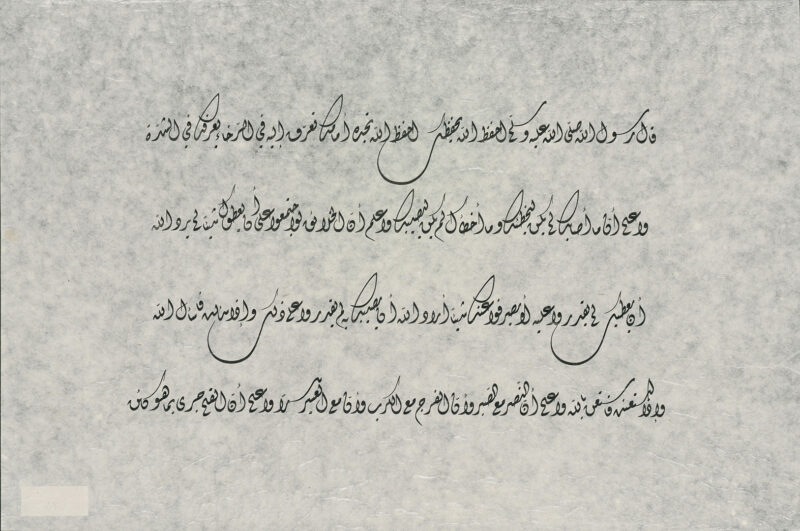 قال رسول الله صلى الله عليه وسلم احفظ الله يحفظك احفظ الله تجده أمامك تعرف إليه في الرخاء يعرفك في الشدة
واعلم أن ما أصابك لم يكن ليخطئك وما أخطأك لم يكن ليصيبك واعلم أن الخلائق لو اجتمعوا على أن يعطوك شيئا لم يرد الله
أن يعطيك لم يقدروا عليه أو يصرفوا عنك شيئا أراد الله أن يصيبك به لم يقدروا على ذلك وإذا سألت فسأل الله
وإذا استعنت فاستعن بالله واعلم أن النصر مع الصبر وأن الفرج مع الكرب وأن مع العسر يسرا واعلم أن القلم جرى بما هو كائن